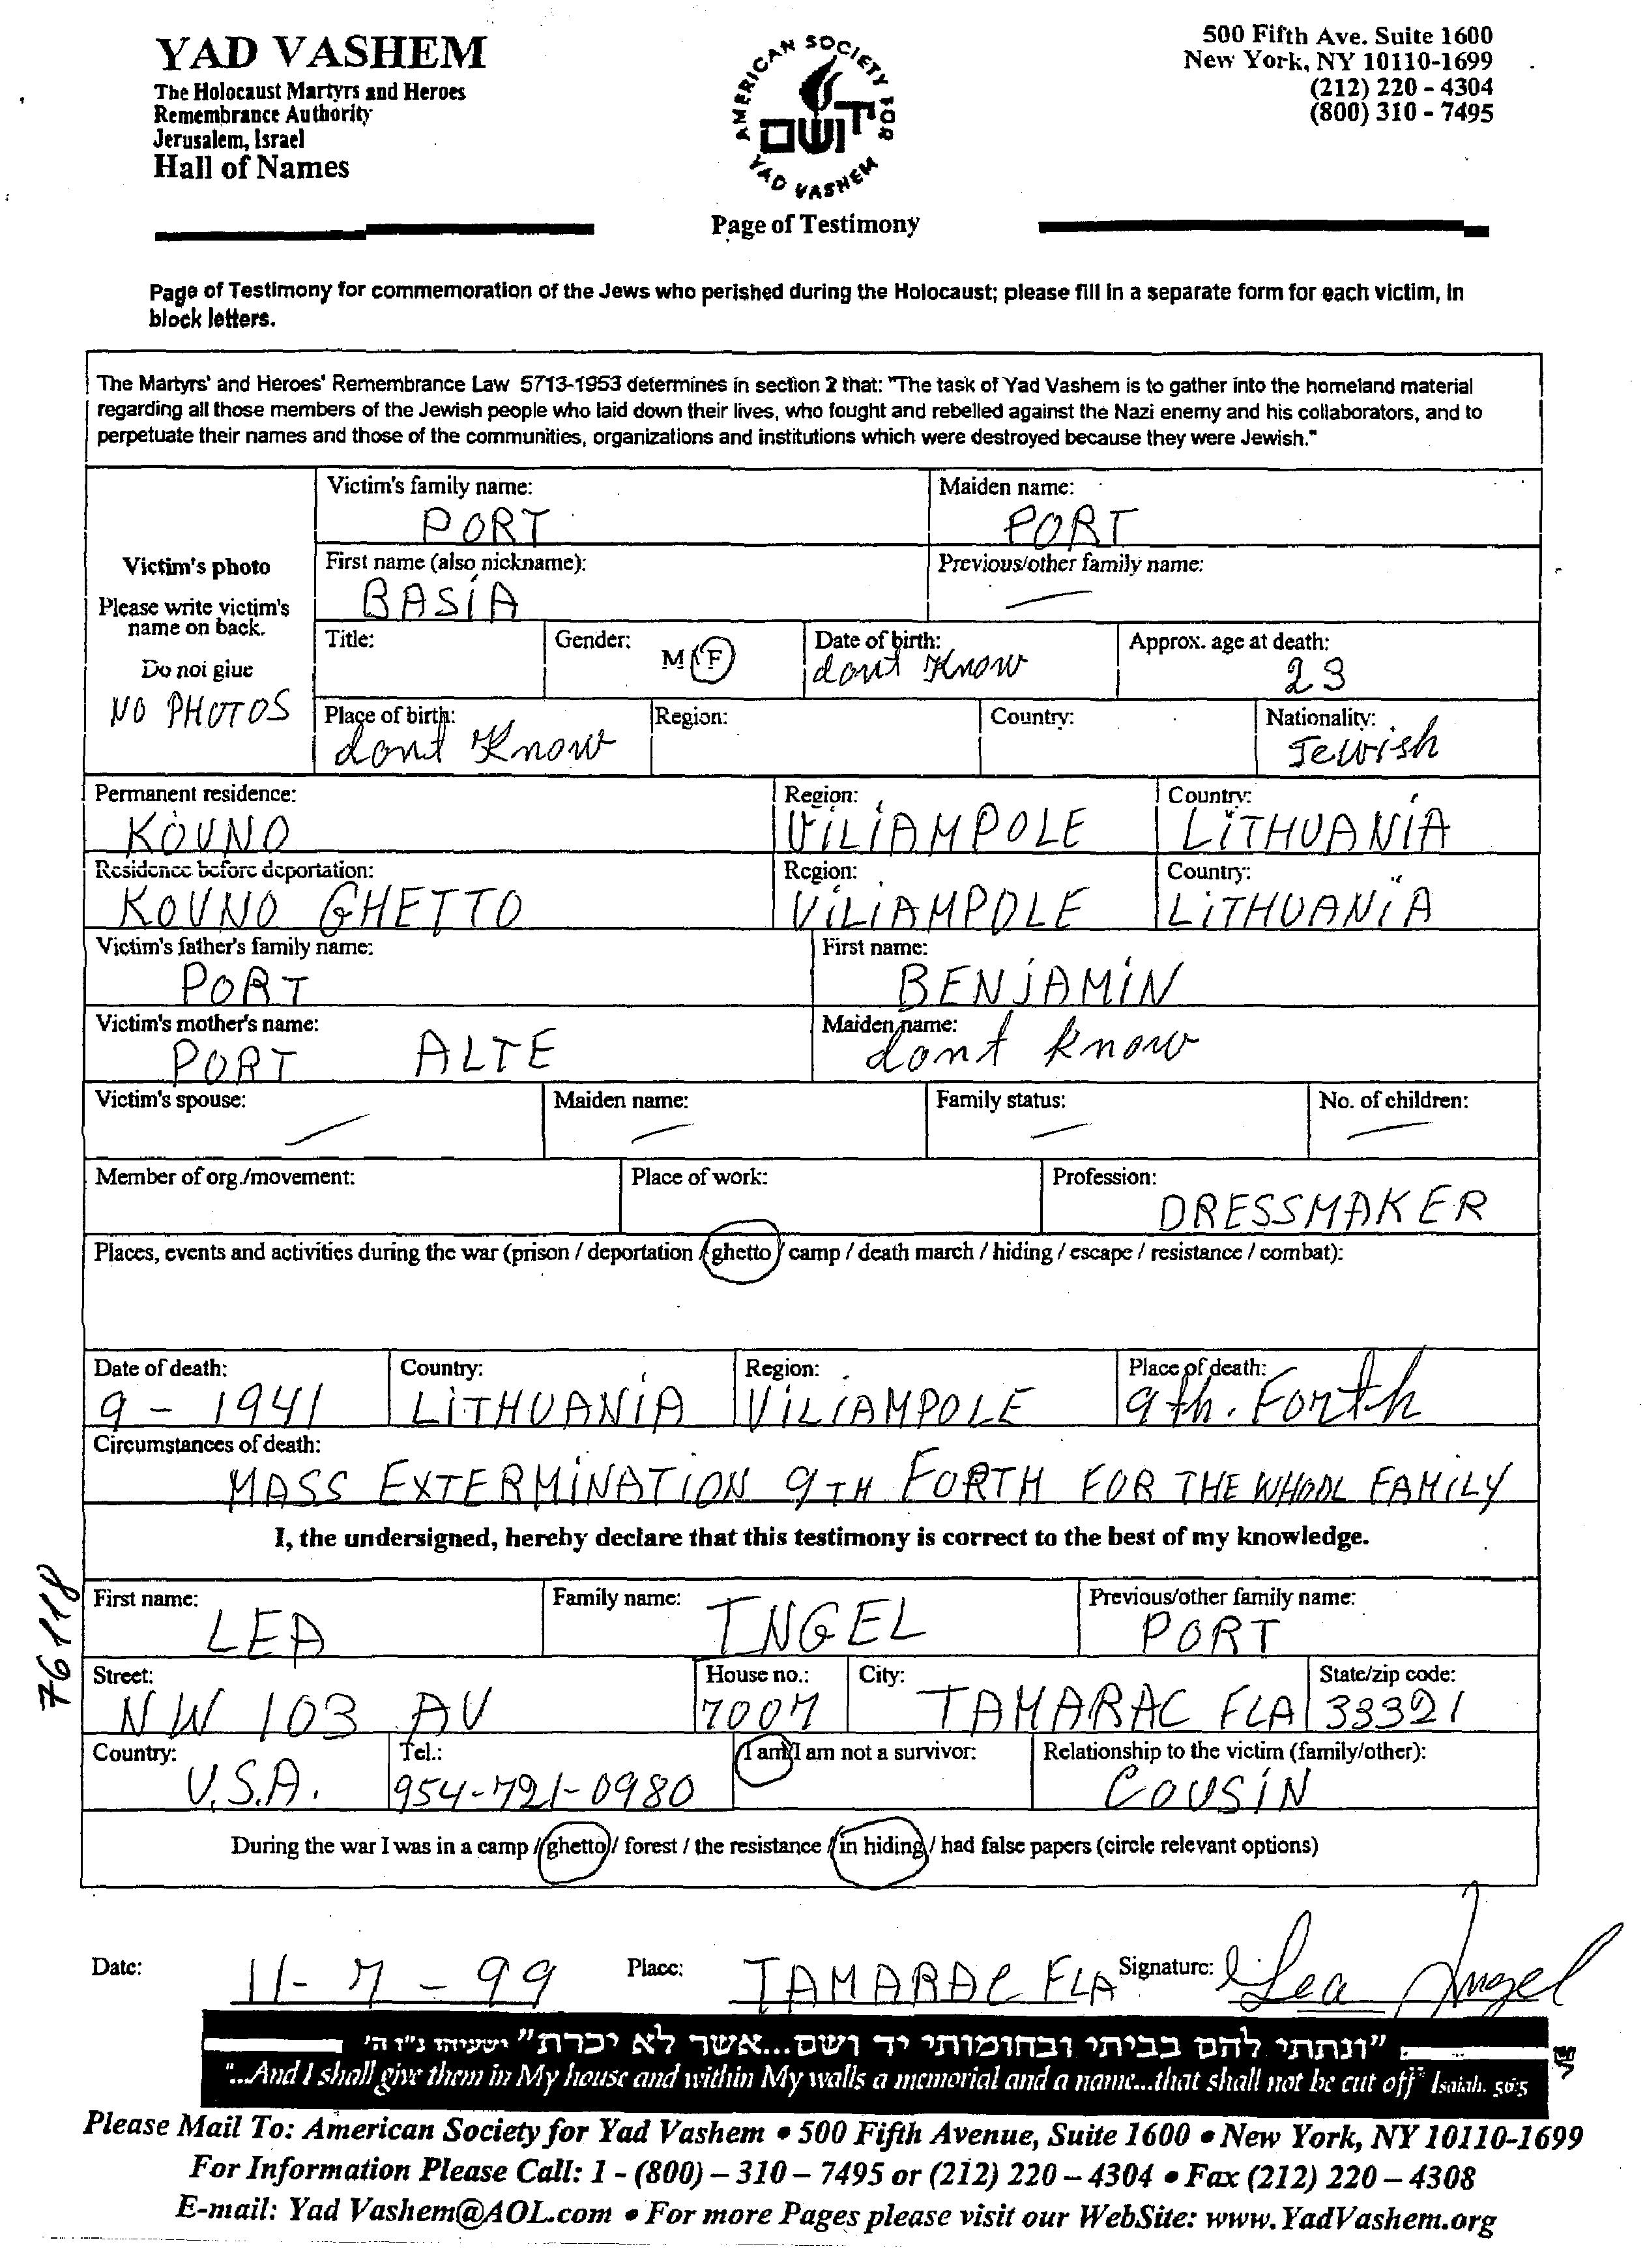 YAD VASHEM
The Holocaust Martyrs and Heroes
Remembrance Authority
Jerusalem, Israel
Hall of Names
AMERICAN SOCIETY FOR
יד ושם
YAD VASHEM
Page of Testimony
500 Fifth Ave. Suite 1600
New York, NY 10110-1699
(212) 220 - 4304
(800) 310 - 7495
Page of Testimony for commemoration of the Jews who perished during the Holocaust; please fill in a separate form for each victim, in
block letters.
The Martyrs' and Heroes' Remembrance Law 5713-1953 determines in section 2 that: "The task of Yad Vashem is to gather into the homeland material
regarding all those members of the Jewish people who laid down their lives, who fought and rebelled against the Nazi enemy and his collaborators, and to
perpetuate their names and those of the communities, organizations and institutions which were destroyed because they were Jewish."
Victim's photo
Please write victim's
name on back.
Do not glue
NO PHOTOS
Victim's family name: Maiden name:
PORT PORT
First name (also nickname): Previous/other family name:
BASIA —
Title: Gender: M F Date of birth: Approx. age at death:
dont Know 23
Place of birth: Region: Country: Nationality:
dont Know Jewish
Permanent residence: Region: Country:
KOVNO VILIAMPOLE LITHUANIA
Residence before deportation: Region: Country:
KOVNO GHETTO VILIAMPOLE LITHUANIA
Victim's father's family name: First name:
PORT BENJAMIN
Victim's mother's name: Maiden name:
PORT ALTE dont know
Victim's spouse: Maiden name: Family status: No. of children:
— — — —
Member of org./movement: Place of work: Profession:
DRESSMAKER
Places, events and activities during the war (prison / deportation / ghetto / camp / death march / hiding / escape / resistance / combat):
Date of death: Country: Region: Place of death:
9 - 1941 LITHUANIA VILIAMPOLE 9th. Forth
Circumstances of death:
MASS EXTERMINATION 9TH FORTH FOR THE WHOOL FAMILY
I, the undersigned, hereby declare that this testimony is correct to the best of my knowledge.
76118
First name: Family name: Previous/other family name:
LEA INGEL PORT
Street: House no.: City: State/zip code:
NW 103 AV 7007 TAMARAC FLA 33321
Country: Tel.: I am/I am not a survivor: Relationship to the victim (family/other):
U.S.A. 954-721-0980 COUSIN
During the war I was in a camp / ghetto / forest / the resistance / in hiding / had false papers (circle relevant options)
Date: 11 - 7 - 99 Place: TAMARAC FLA Signature: Lea Ingel
"ונתתי להם בביתי ובחומותי יד ושם...אשר לא יכרת" ישעיהו נ"ו ה'
"...And I shall give them in My house and within My walls a memorial and a name...that shall not be cut off" Isaiah. 56:5
Please Mail To: American Society for Yad Vashem • 500 Fifth Avenue, Suite 1600 • New York, NY 10110-1699
For Information Please Call: 1 - (800) – 310 – 7495 or (212) 220 – 4304 • Fax (212) 220 – 4308
E-mail: Yad Vashem@AOL.com • For more Pages please visit our WebSite: www.YadVashem.org